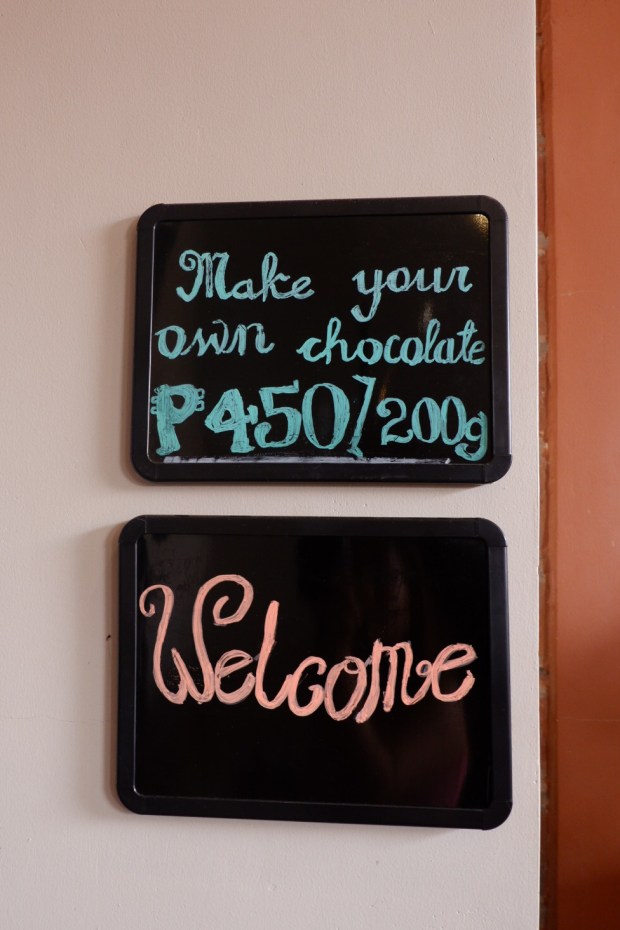 Make your
own chocolate
₱450/200g
Welcome